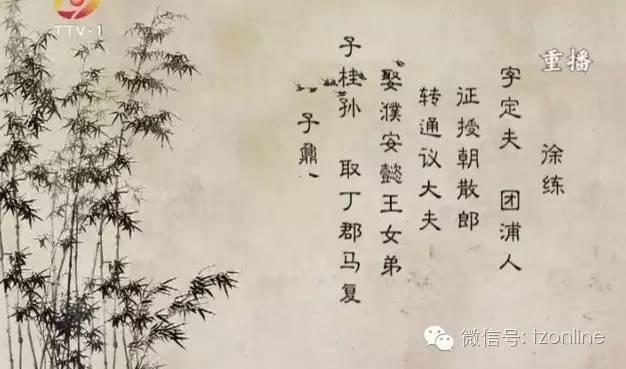 TTV-1
重播
徐练
字定夫 团浦人
征授朝散郎
转通议大夫
娶濮安懿王女弟
子桂孙 取丁郡马复
子
微信号: tzonline